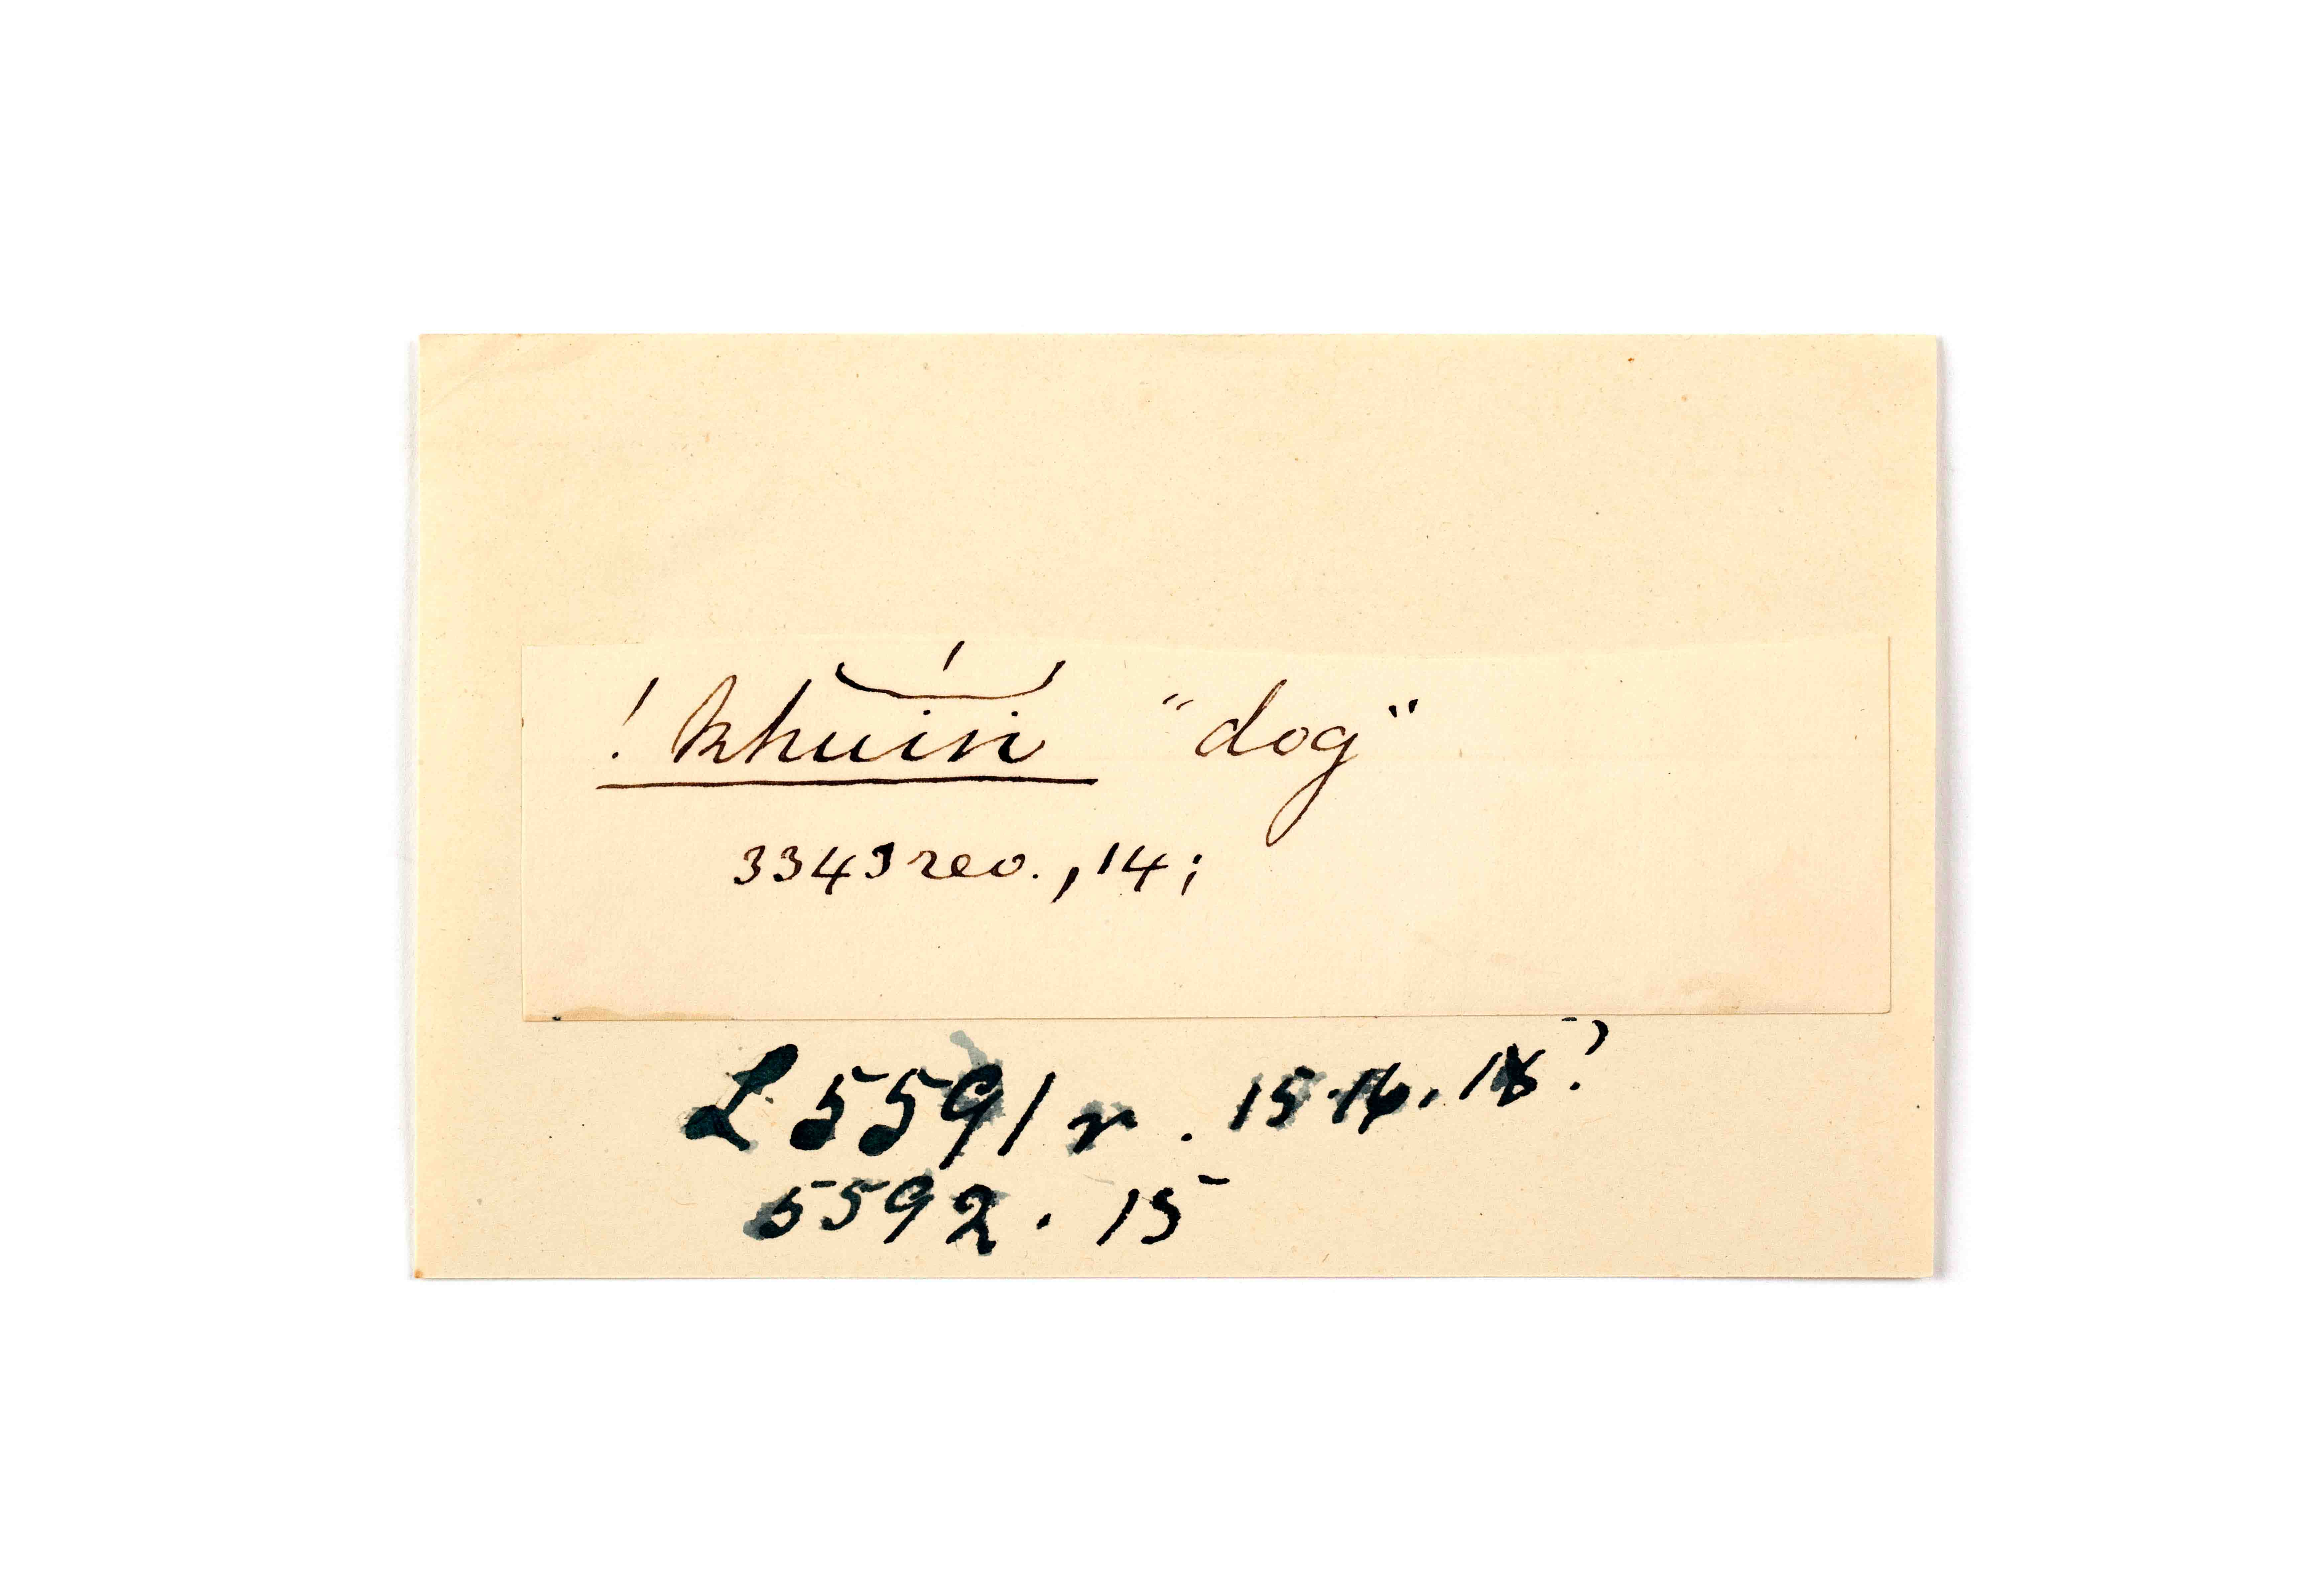 ! khuin "dog"
3343 rev., 14;
L 5591 r. 15.16. 18?
5592. 15